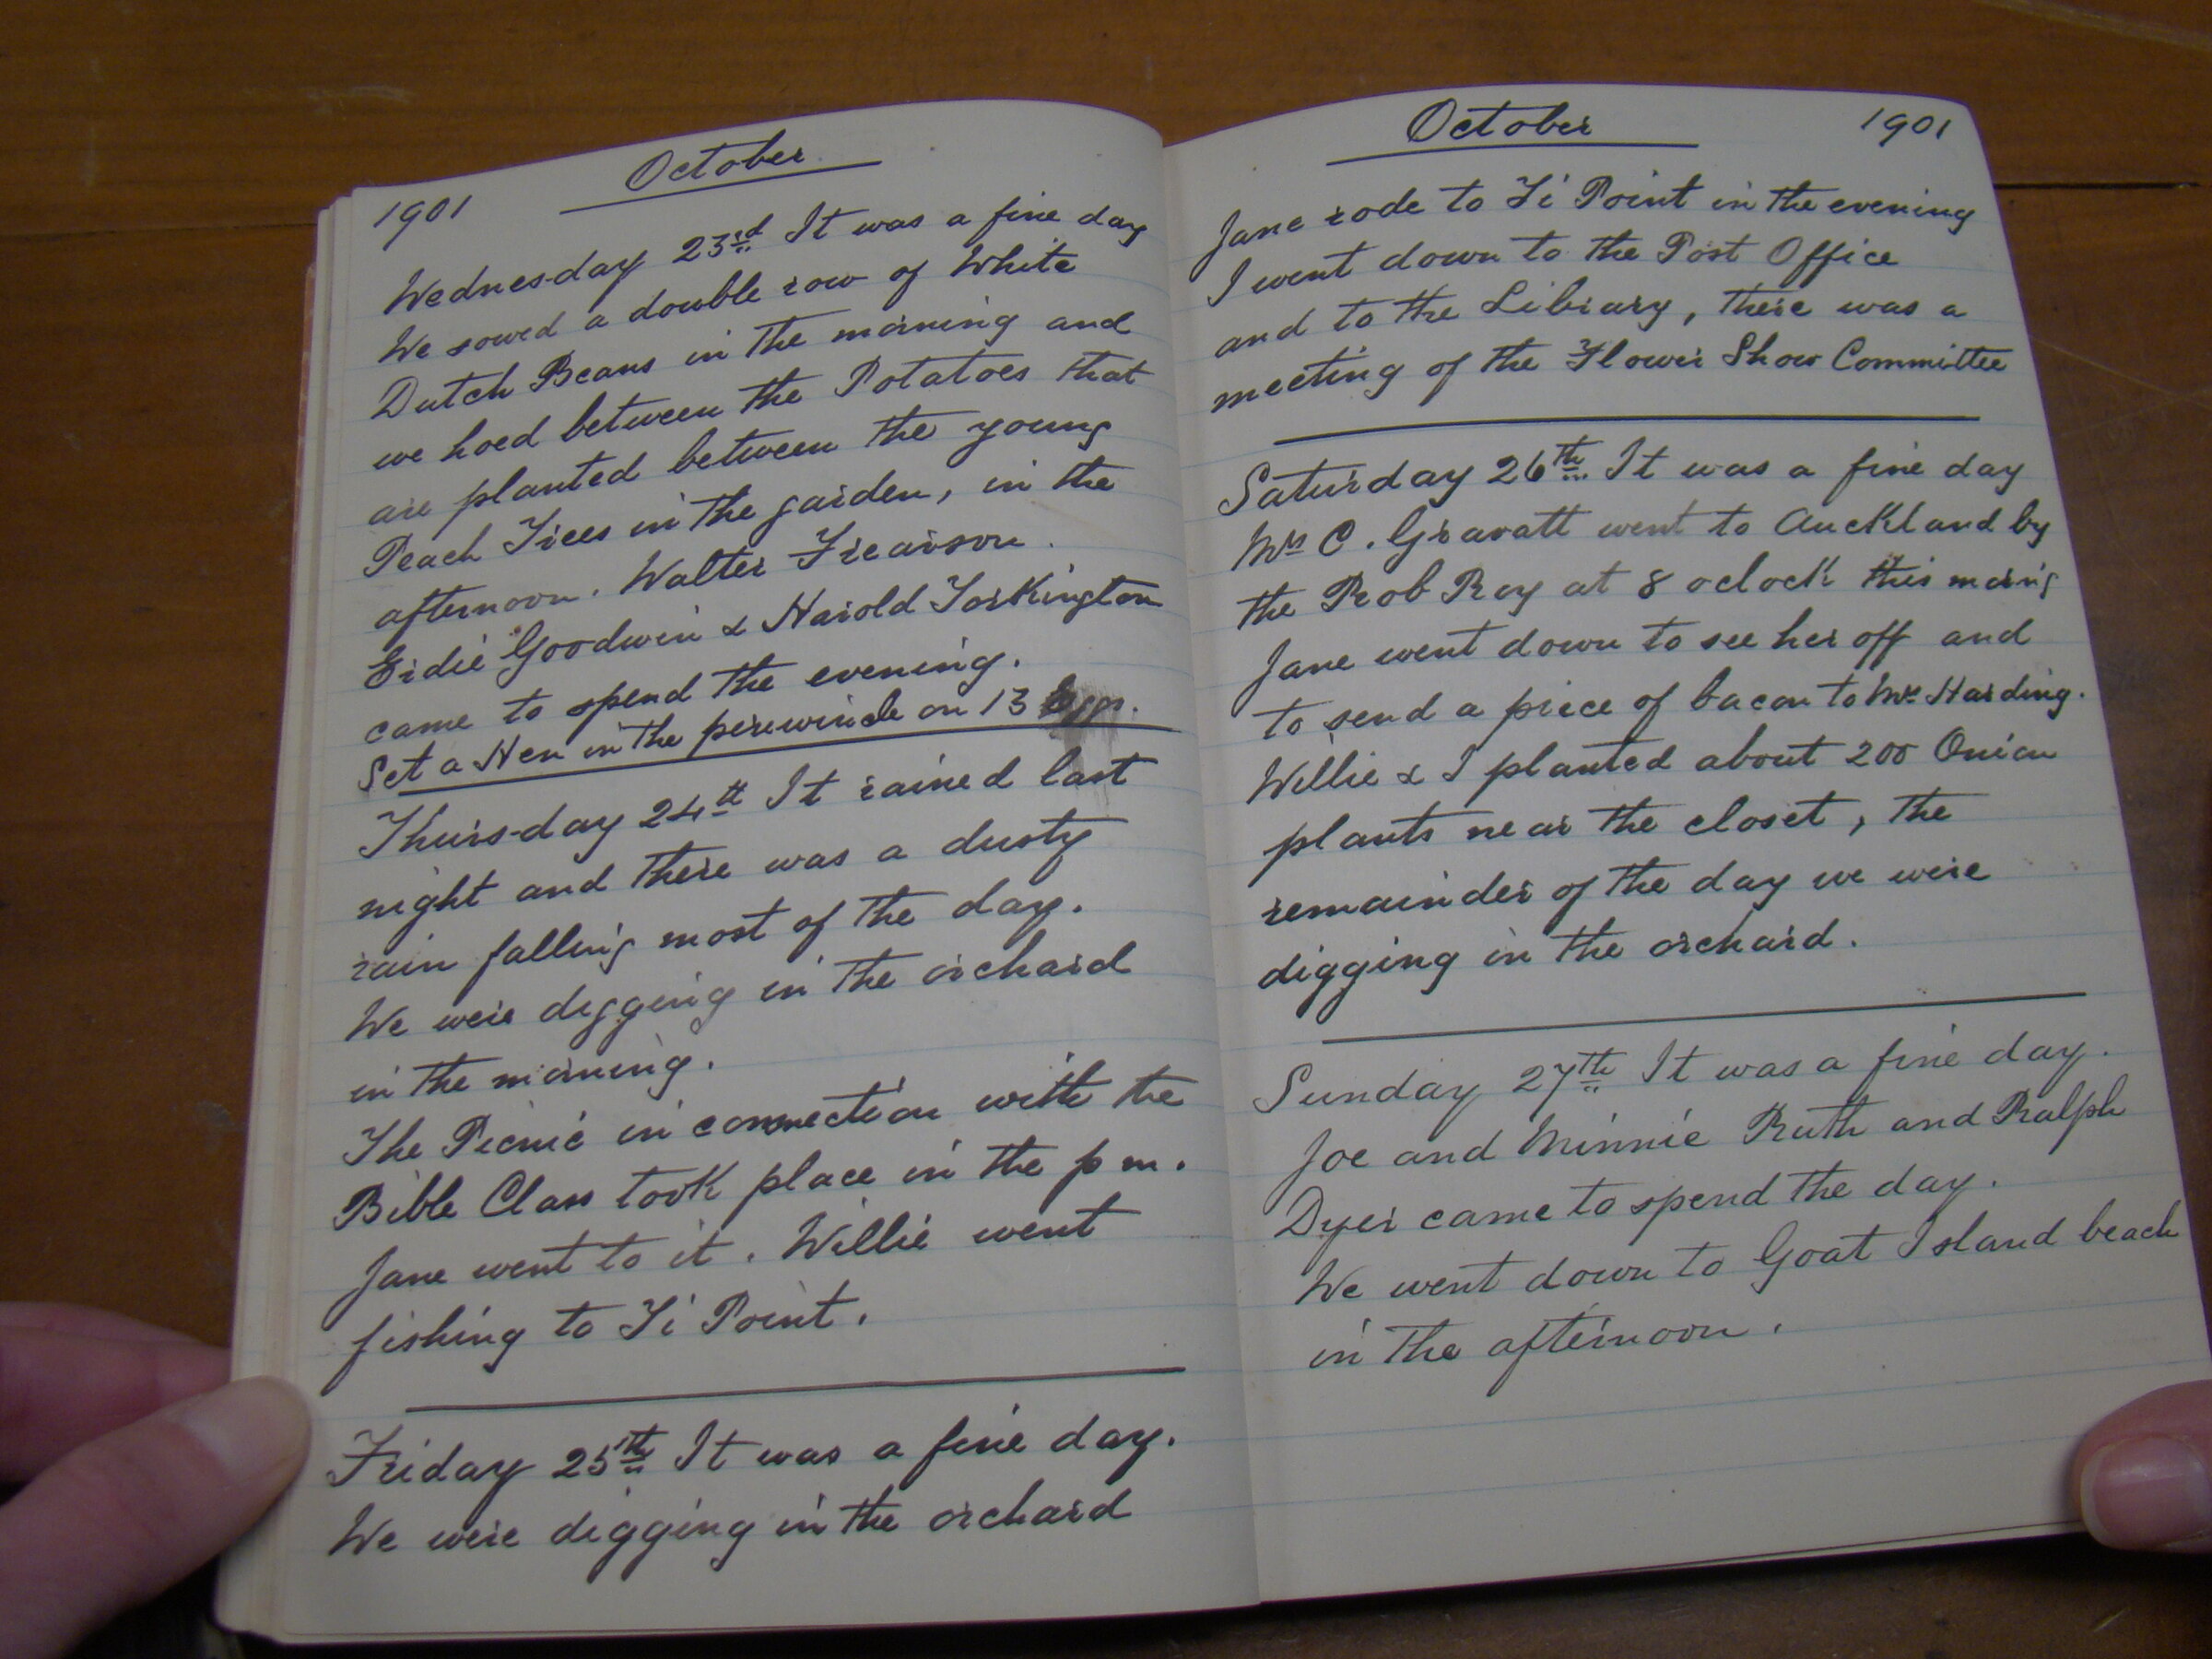 October
1901
Wednesday 23rd It was a fine day
We sowed a double row of White
Dutch Beans in the morning and
we hoed between the Potatoes that
are planted between the young
Peach Trees in the garden, in the
afternoon. Walter Frearson
Erdie Goodwin & Harold Torkington
came to spend the evening.
Set a Hen in the perewincle on 13 Eggs.
Thursday 24th It rained last
night and there was a dusty
rain falling most of the day.
We were digging in the orchard
in the morning.
The Picnic in connection with the
Bible Class took place in the p m.
Jane went to it. Willie went
fishing to Ti Point.
Friday 25th It was a fine day.
We were digging in the orchard
October 1901
Jane rode to Ti Point in the evening
I went down to the Post Office
and to the Library, there was a
meeting of the Flower Show Committee
Saturday 26th It was a fine day
Mrs C. Gravatt went to Auckland by
the Rob Roy at 8 oclock this morng
Jane went down to see her off and
to send a piece of bacon to Harding.
Willie & I planted about 200 Onion
plants near the closet, the
remainder of the day we were
digging in the orchard.
Sunday 27th It was a fine day.
Joe and Minnie Ruth and Ralph
Dyer came to spend the day.
We went down to Goat Island beach
in the afternoon.